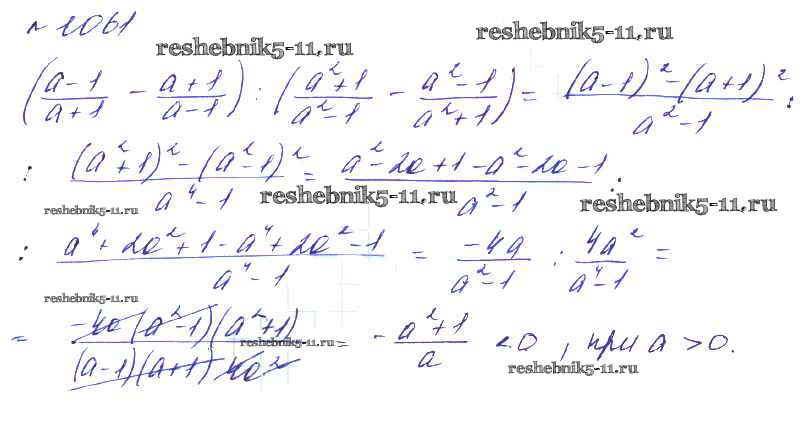 № 1061
reshebnik5-11.ru
reshebnik5-11.ru
((a-1)/(a+1) - (a+1)/(a-1)) : ((a²+1)/(a²-1) - (a²-1)/(a²+1)) = ((a-1)²-(a+1)²)/(a²-1) :
: ((a²+1)²-(a²-1)²)/(a⁴-1) = (a²-2a+1-a²-2a-1)/(a²-1) :
reshebnik5-11.ru
reshebnik5-11.ru
reshebnik5-11.ru
: (a⁴+2a²+1-a⁴+2a²-1)/(a⁴-1) = (-4a)/(a²-1) : (4a²)/(a⁴-1) =
reshebnik5-11.ru
= (-4a(a²-1)(a²+1))/((a-1)(a+1)4a²) = -(a²+1)/a < 0, при a > 0.
reshebnik5-11.ru
reshebnik5-11.ru